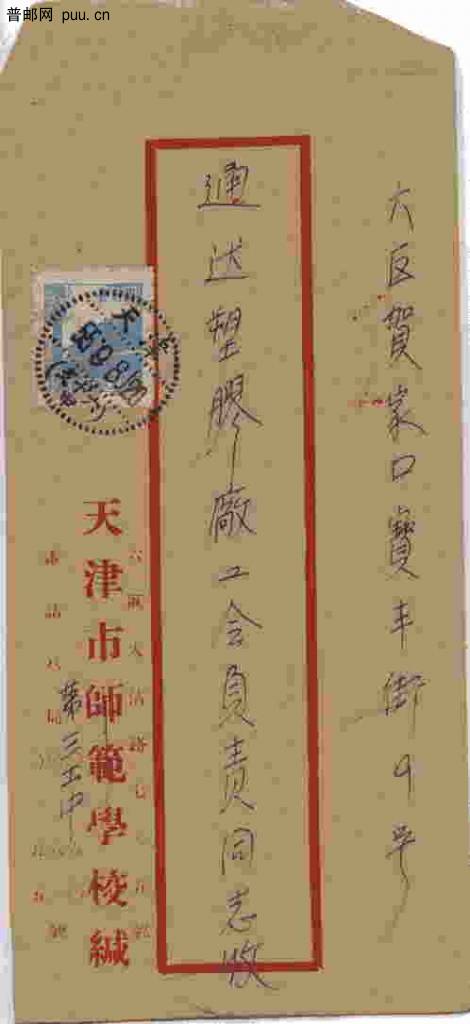 普邮网 puu.cn
六区賀家口寳丰街9号
通达塑膠廠工会負責同志收
天津市師範學校緘
第三工中
天津